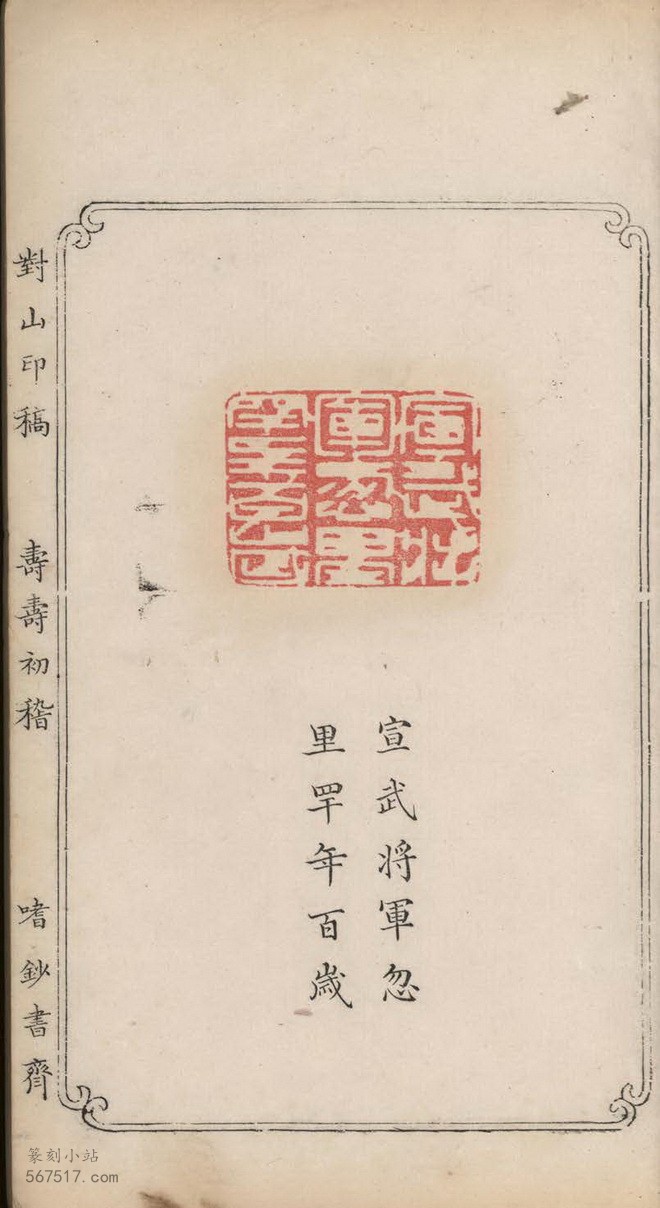 宣武将軍忽
里罕年百嵗
對山印稿 壽壽初稽 嗜鈔書齊
篆刻小站
567517.com